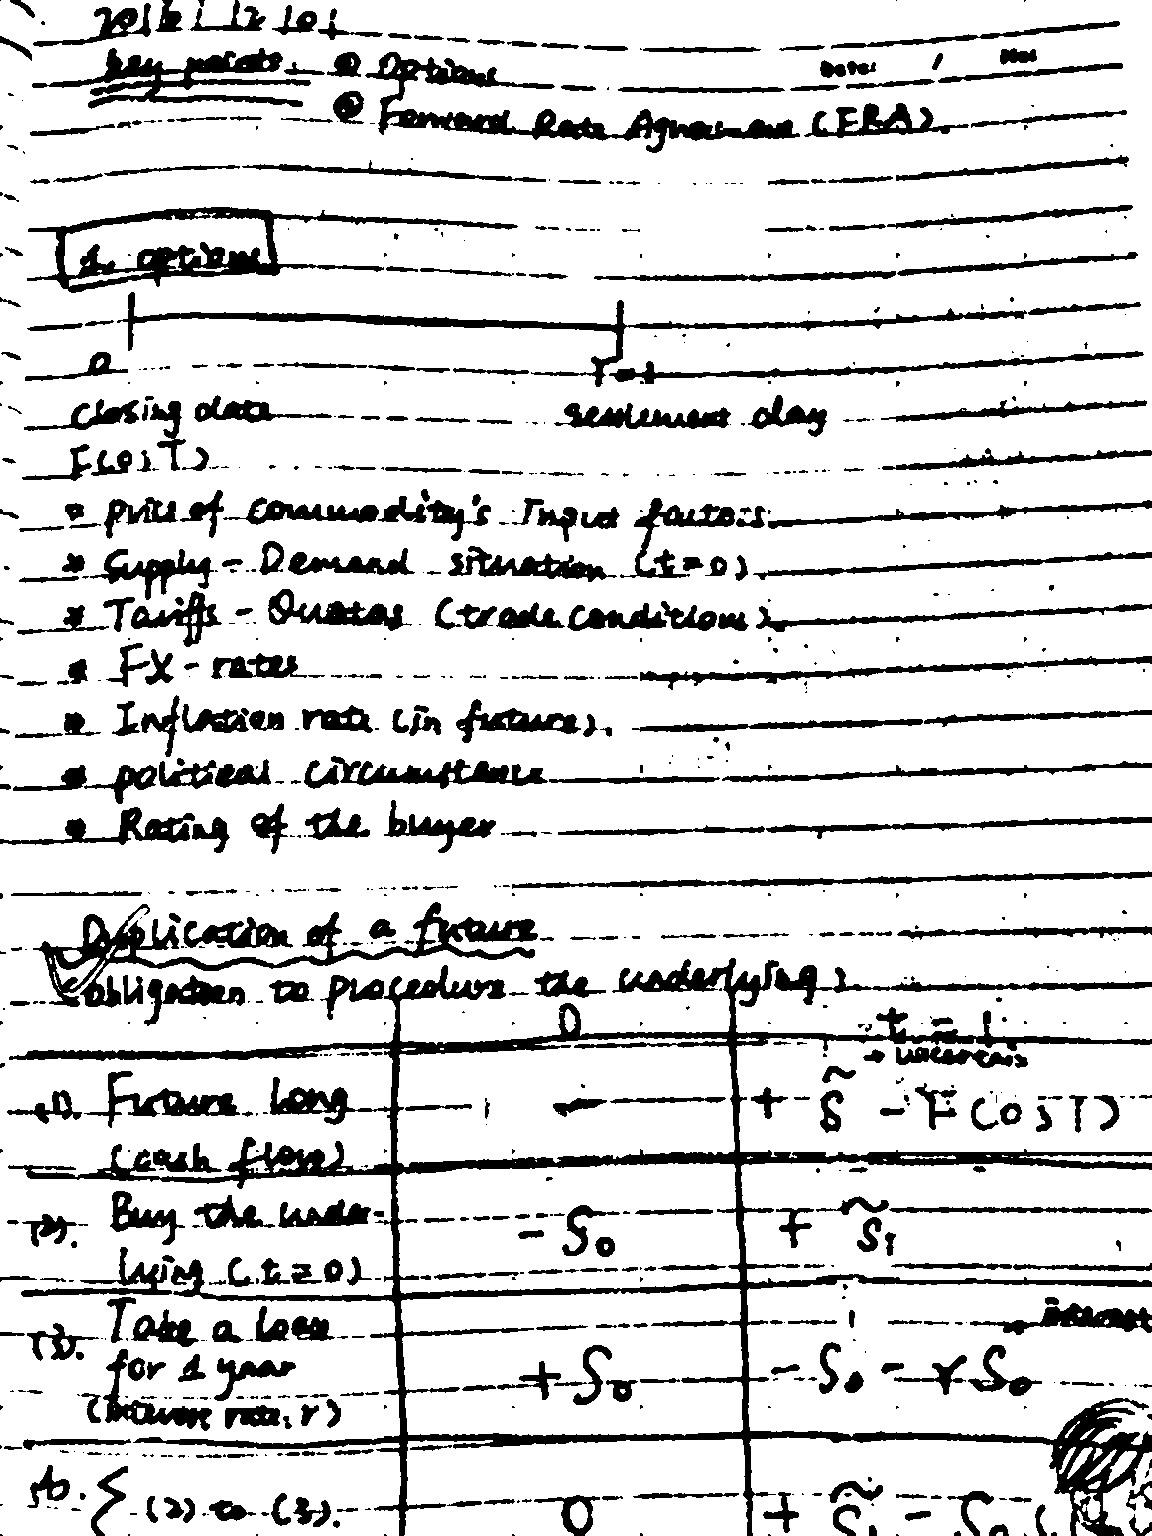 2016 / 12 / 01
key points: ① Options Date: / No:
② Forward Rate Agreement (FRA).
1. options
0 T=1
Closing date settlement day
F(0;T)
* price of commodity's Input factors.
* Supply - Demand situation (t=0)
* Tariffs - Quotas (trade conditions).
* FX - rates
* Inflation rate (in future).
* political circumstance
* Rating of the buyer
Duplication of a future
(obligation to procedure the underlying)
0 t = 1
→ uncertain
(1). Future long - + S̃ - F(0;T)
(cash flow)
(2). Buy the under- - S₀ + S̃₁
lying (t=0)
(3). Take a loan → interest
for 1 year + S₀ - S₀ - rS₀
(interest rate: r)
Σ (2) to (3). 0 + S̃₁ - S₀ (